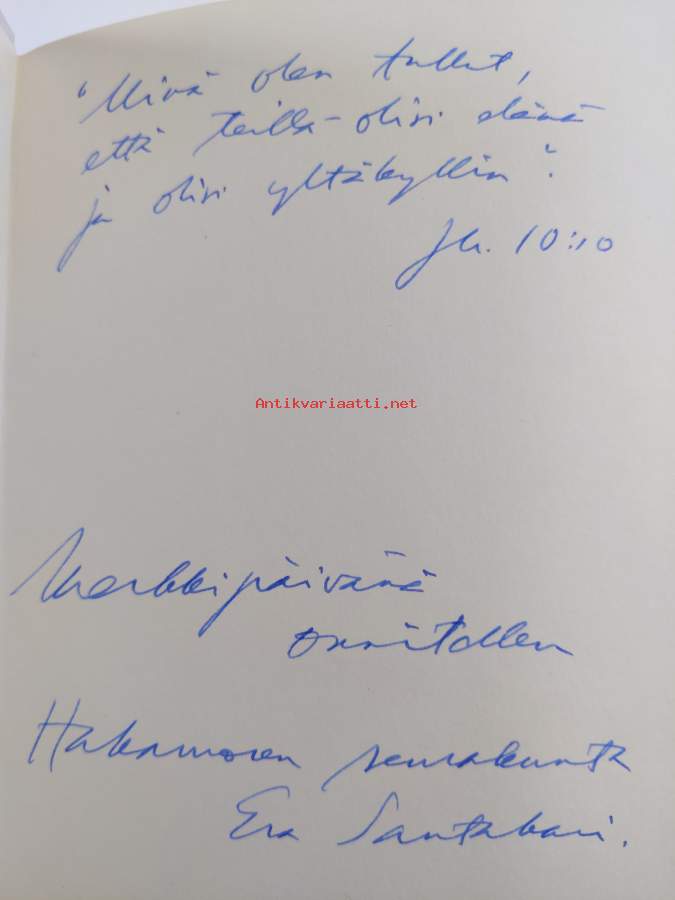 "Minä olen tullut,
että teillä olisi elämä
ja olisi yltäkyllin".
Jh. 10:10
Antikvariaatti.net
Merkkipäivänä
onnitellen
Hakavuoren seurakunta
Esa Santakari.